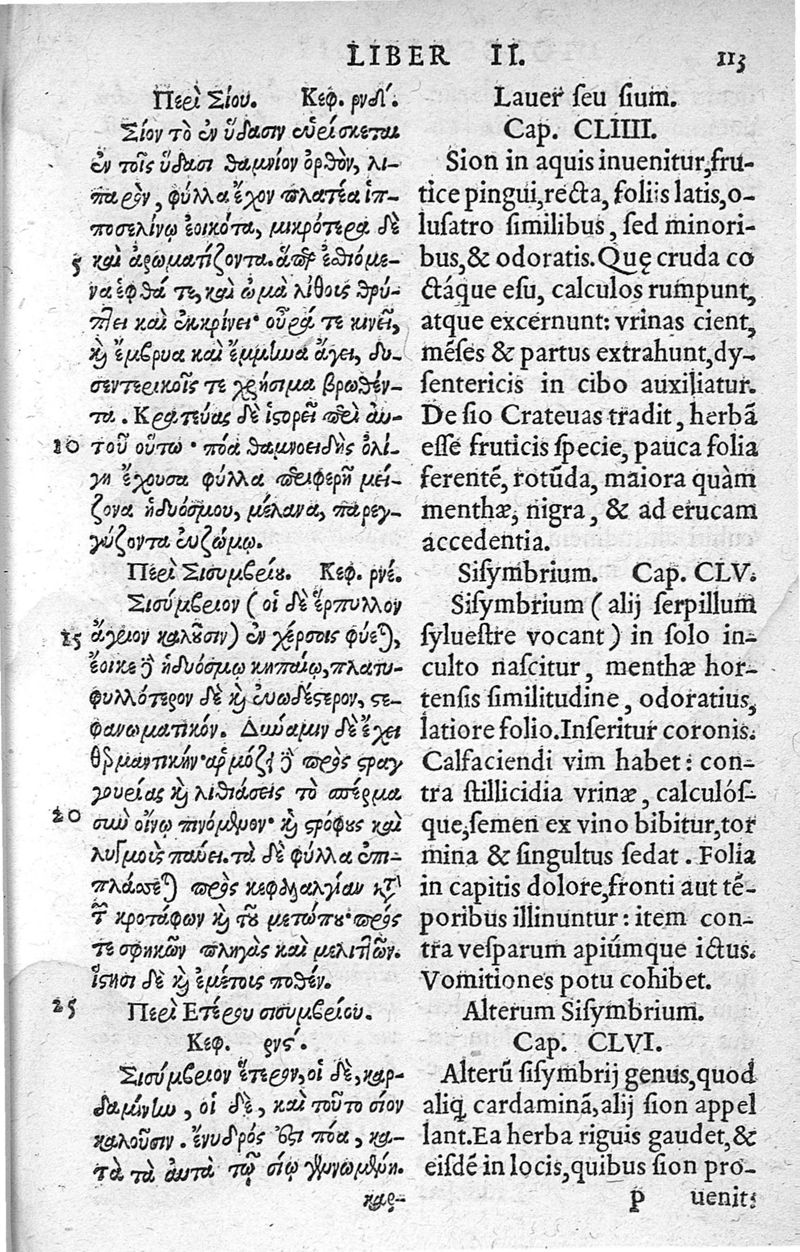 LIBER II. 113
Περὶ Σίου. Κεφ. ρνδ´.
Σίον τὸ ἐν ὕδασιν εὑρίσκεται
ἐν τοῖς ὕδασι θαμνίον ὀρθὸν, λι-
παρὸν, φύλλα ἔχον πλατέα ἱπ-
ποσελίνῳ ἐοικότα, μικρότερα δὲ
5 καὶ ἀρωματίζοντα. ἅπερ ἐσθιόμε-
να ἑφθά τε, καὶ ὠμὰ λίθοις θρύ-
πτει καὶ ἐκκρίνει· οὖρά τε κινεῖ,
καὶ ἔμβρυα καὶ ἔμμηνα ἄγει, δυ-
σεντερικοῖς τε χρήσιμα βρωθέν-
τα. Κρατεύας δὲ ἱστορεῖ περὶ αὐ-
10 τοῦ οὕτω· πόα θαμνοειδὴς ὀλί-
γη ἔχουσα φύλλα περιφερῆ μεί-
ζονα ἡδυόσμου, μέλανα, παρεγ-
γύζοντα εὐζώμῳ.
Περὶ Σισυμβρίου. Κεφ. ρνέ.
Σισύμβριον (οἱ δὲ ἕρπυλλον
15 ἄγριον καλοῦσιν) ἐν χέρσοις φύεται,
ἔοικε δὲ ἡδυόσμῳ κηπαίῳ, πλατυ-
φυλλότερον δὲ καὶ εὐωδέστερον, στε-
φανωματικόν. Δύναμιν δὲ ἔχει
θερμαντικήν· ἁρμόζει δὲ πρὸς στραγ
γουρίας καὶ λιθιάσεις τὸ σπέρμα
20 σὺν οἴνῳ πινόμενον· καὶ στρόφους καὶ
λυγμοὺς παύει. τὰ δὲ φύλλα ἐπι-
πλάσσεται πρὸς κεφαλαλγίαν κατὰ
τῶν κροτάφων καὶ τοῦ μετώπου· πρὸς
τε σφηκῶν πληγὰς καὶ μελιττῶν.
ἵστησι δὲ καὶ ἐμέτοις ποθέν.
25 Περὶ Ετέρου σισυμβρίου.
Κεφ. ρνς´.
Σισύμβριον ἕτερον, οἱ δὲ, καρ-
δαμίνην, οἱ δὲ, καὶ τοῦτο σίον
καλοῦσιν. ἔνυδρός ἐστι πόα, κα-
τὰ τὰ αὐτὰ τῷ σίῳ γενομένη.
καρ-
Lauer seu sium.
Cap. CLIIII.
Sion in aquis inuenitur, fru-
tice pingui, recta, foliis latis, o-
lusatro similibus, sed minori-
bus, & odoratis. Quę cruda co
ctáque esu, calculos rumpunt,
atque excernunt: vrinas cient,
mẽses & partus extrahunt, dy-
sentericis in cibo auxiliatur.
De sio Crateuas tradit, herbã
esse fruticis specie, pauca folia
ferentẽ, rotũda, maiora quàm
menthæ, nigra, & ad erucam
accedentia.
Sisymbrium. Cap. CLV.
Sisymbrium (alij serpillum
syluestre vocant) in solo in-
culto nascitur, menthæ hor-
tensis similitudine, odoratius,
latiore folio. Inseritur coronis.
Calfaciendi vim habet: con-
tra stillicidia vrinæ, calculós-
que, semen ex vino bibitur, tor
mina & singultus sedat. Folia
in capitis dolore, fronti aut tẽ-
poribus illinuntur: item con-
tra vesparum apiúmque ictus.
Vomitiones potu cohibet.
Alterum Sisymbrium.
Cap. CLVI.
Alterũ sisymbrij genus, quod
aliq̃ cardaminã, alij sion appel
lant. Ea herba riguis gaudet, &
eisdẽ in locis, quibus sion pro-
P uenit: